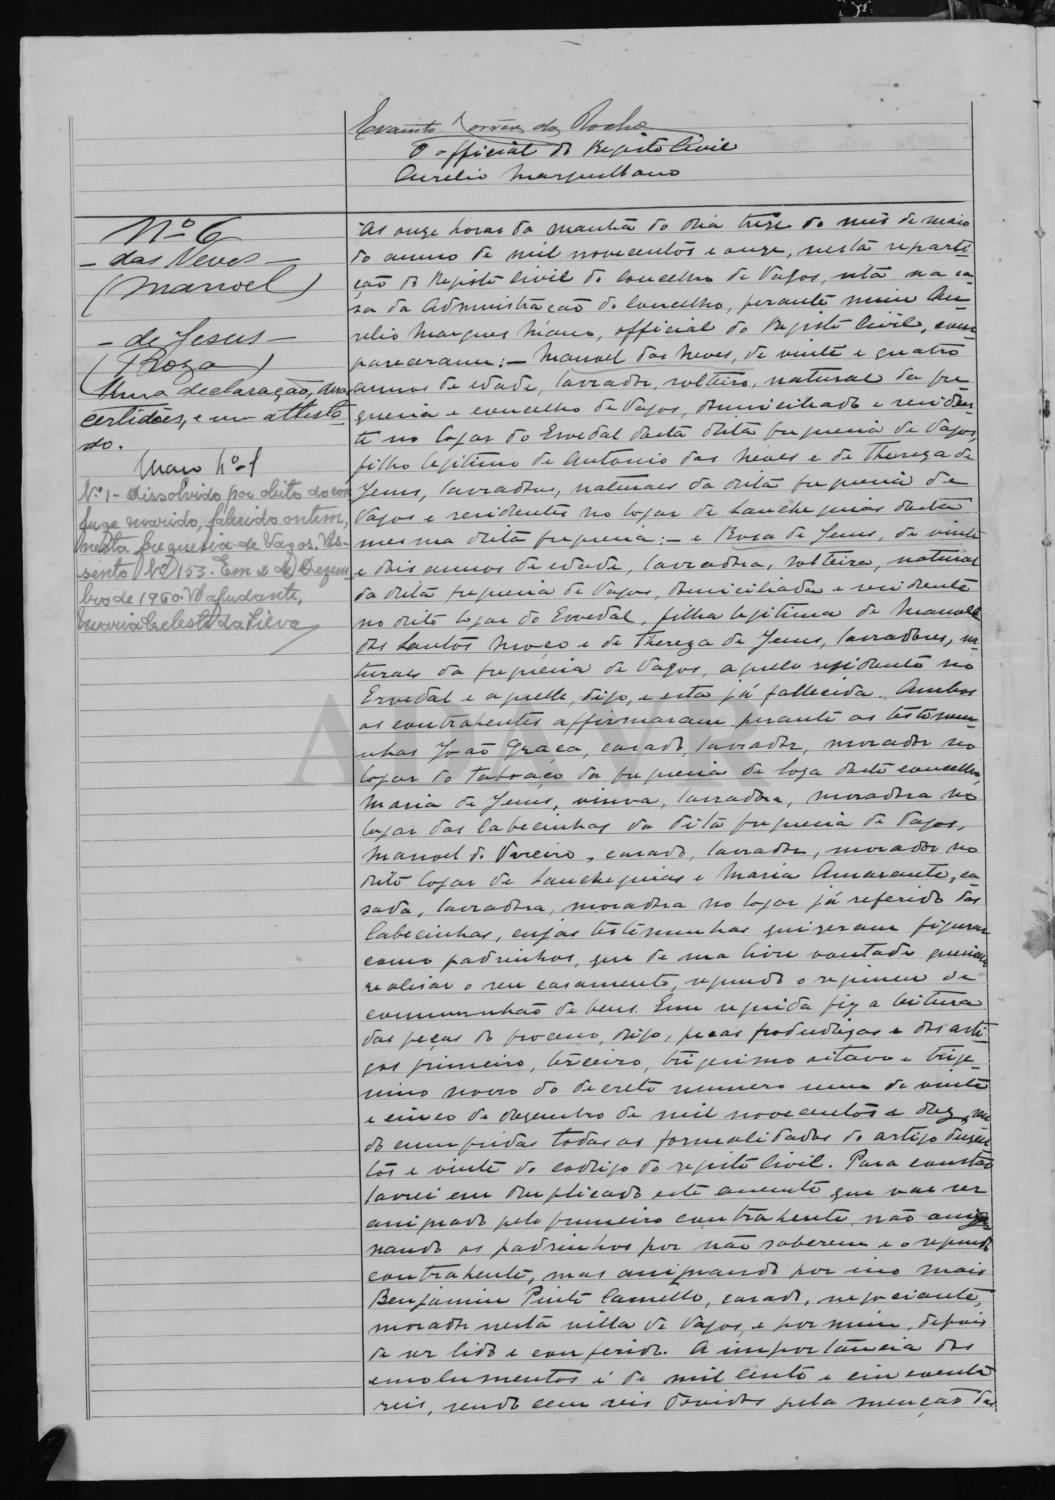 Evaristo Corrêa da Rocha
O official do Registo Civil
Aurelio Marques Mano
Nº 6
- das Neves -
(Manoel)
- de Jesus -
(Roza)
Uma declaração, duas
certidões, e um attesta-
do.
Maço nº 1
Nº 1 - Dissolvido por óbito do con-
juge marido, falecido ontem,
nesta freguesia de Vagos. As-
sento Nº 153. Em 2 de Dezem-
bro de 1960. O ajudante,
Maria Celeste da Silva
As onze horas da manhã do dia treze do mês de maio
do anno de mil novecentos e onze, nesta reparti-
ção do Registo Civil do Concelho de Vagos, sita na ca-
sa da Administração do Concelho, perante mim Au-
relio Marques Mano, official do Registo Civil, com-
pareceram: - Manoel das Neves, de vinte e quatro
annos de edade, lavrador, solteiro, natural da fre-
guesia e concelho de Vagos, domiciliado e residen-
te no logar do Ervedal desta dita freguesia de Vagos,
filho legitimo de Antonio das Neves e de Thereza de
Jesus, lavradores, naturaes da dita freguesia de
Vagos e residentes no logar de Sanchequias desta
mesma dita freguesia: - e Rosa de Jesus, de vinte
e dois annos de edade, lavradora, solteira, natural
da dita freguesia de Vagos, domiciliada e residente
no dito logar do Ervedal, filha legitima de Manoel
dos Santos Moço e de Thereza de Jesus, lavradores, na-
turaes da freguesia de Vagos, aquelle residente no
Ervedal e aquelle, digo, e esta já fallecida. Ambos
os contrahentes affirmaram perante as testemu-
nhas João Graça, casado, lavrador, morador no
logar do Tabuaço da freguesia de Soza deste concelho,
Maria de Jesus, viuva, lavradora, moradora no
logar das Cabecinhas da dita freguesia de Vagos,
Manoel d. , casado, lavrador, morador no
dito logar de Sanchequias e Maria Amarante, ca-
sada, lavradora, moradora no logar já referido das
Cabecinhas, cujas testemunhas quizeram figurar
como padrinhos, que de sua livre vontade queriam
realisar o seu casamento, segundo o regimen de
communhão de bens. Em seguida fiz a leitura
das peças do processo, digo, peças produzidas e dos arti-
gos primeiro, terceiro, trigesimo oitavo e trige-
simo nono do decreto numero um de vinte
e cinco de dezembro de mil novecentos e dez, sen-
do cumpridas todas as formalidades do artigo duzen-
tos e vinte do codigo do registo civil. Para constar
lavrei em duplicado este assento que vae ser
assignado pelo primeiro contrahente, não assig-
nando os padrinhos por não saberem e o segundo
contrahente, mas assignando por isso mais
Benjamim Pinto Camello, casado, negociante,
morador nesta villa de Vagos, e por mim, depois
de ser lido e conferido. A importancia dos
emolumentos é de mil cento e cincoenta
reis, sendo cem reis devidos pela menção das
ADAVR